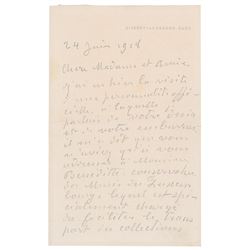 GIVERNY PAR VERNON EURE
24 Juin 1918
Chère Madame et Amie
J'ai eu hier la visite
d'une personnalité offi-
cielle, à laquelle j'
parlais de votre désir
et de votre
et m'a dit que vous
n'aviez qu'à vous
adresser à Monsieur
Bénédite conservateur
des Musées du Luxem
bourg, lequel est spé-
cialement chargé
de faciliter le trans
port des collections